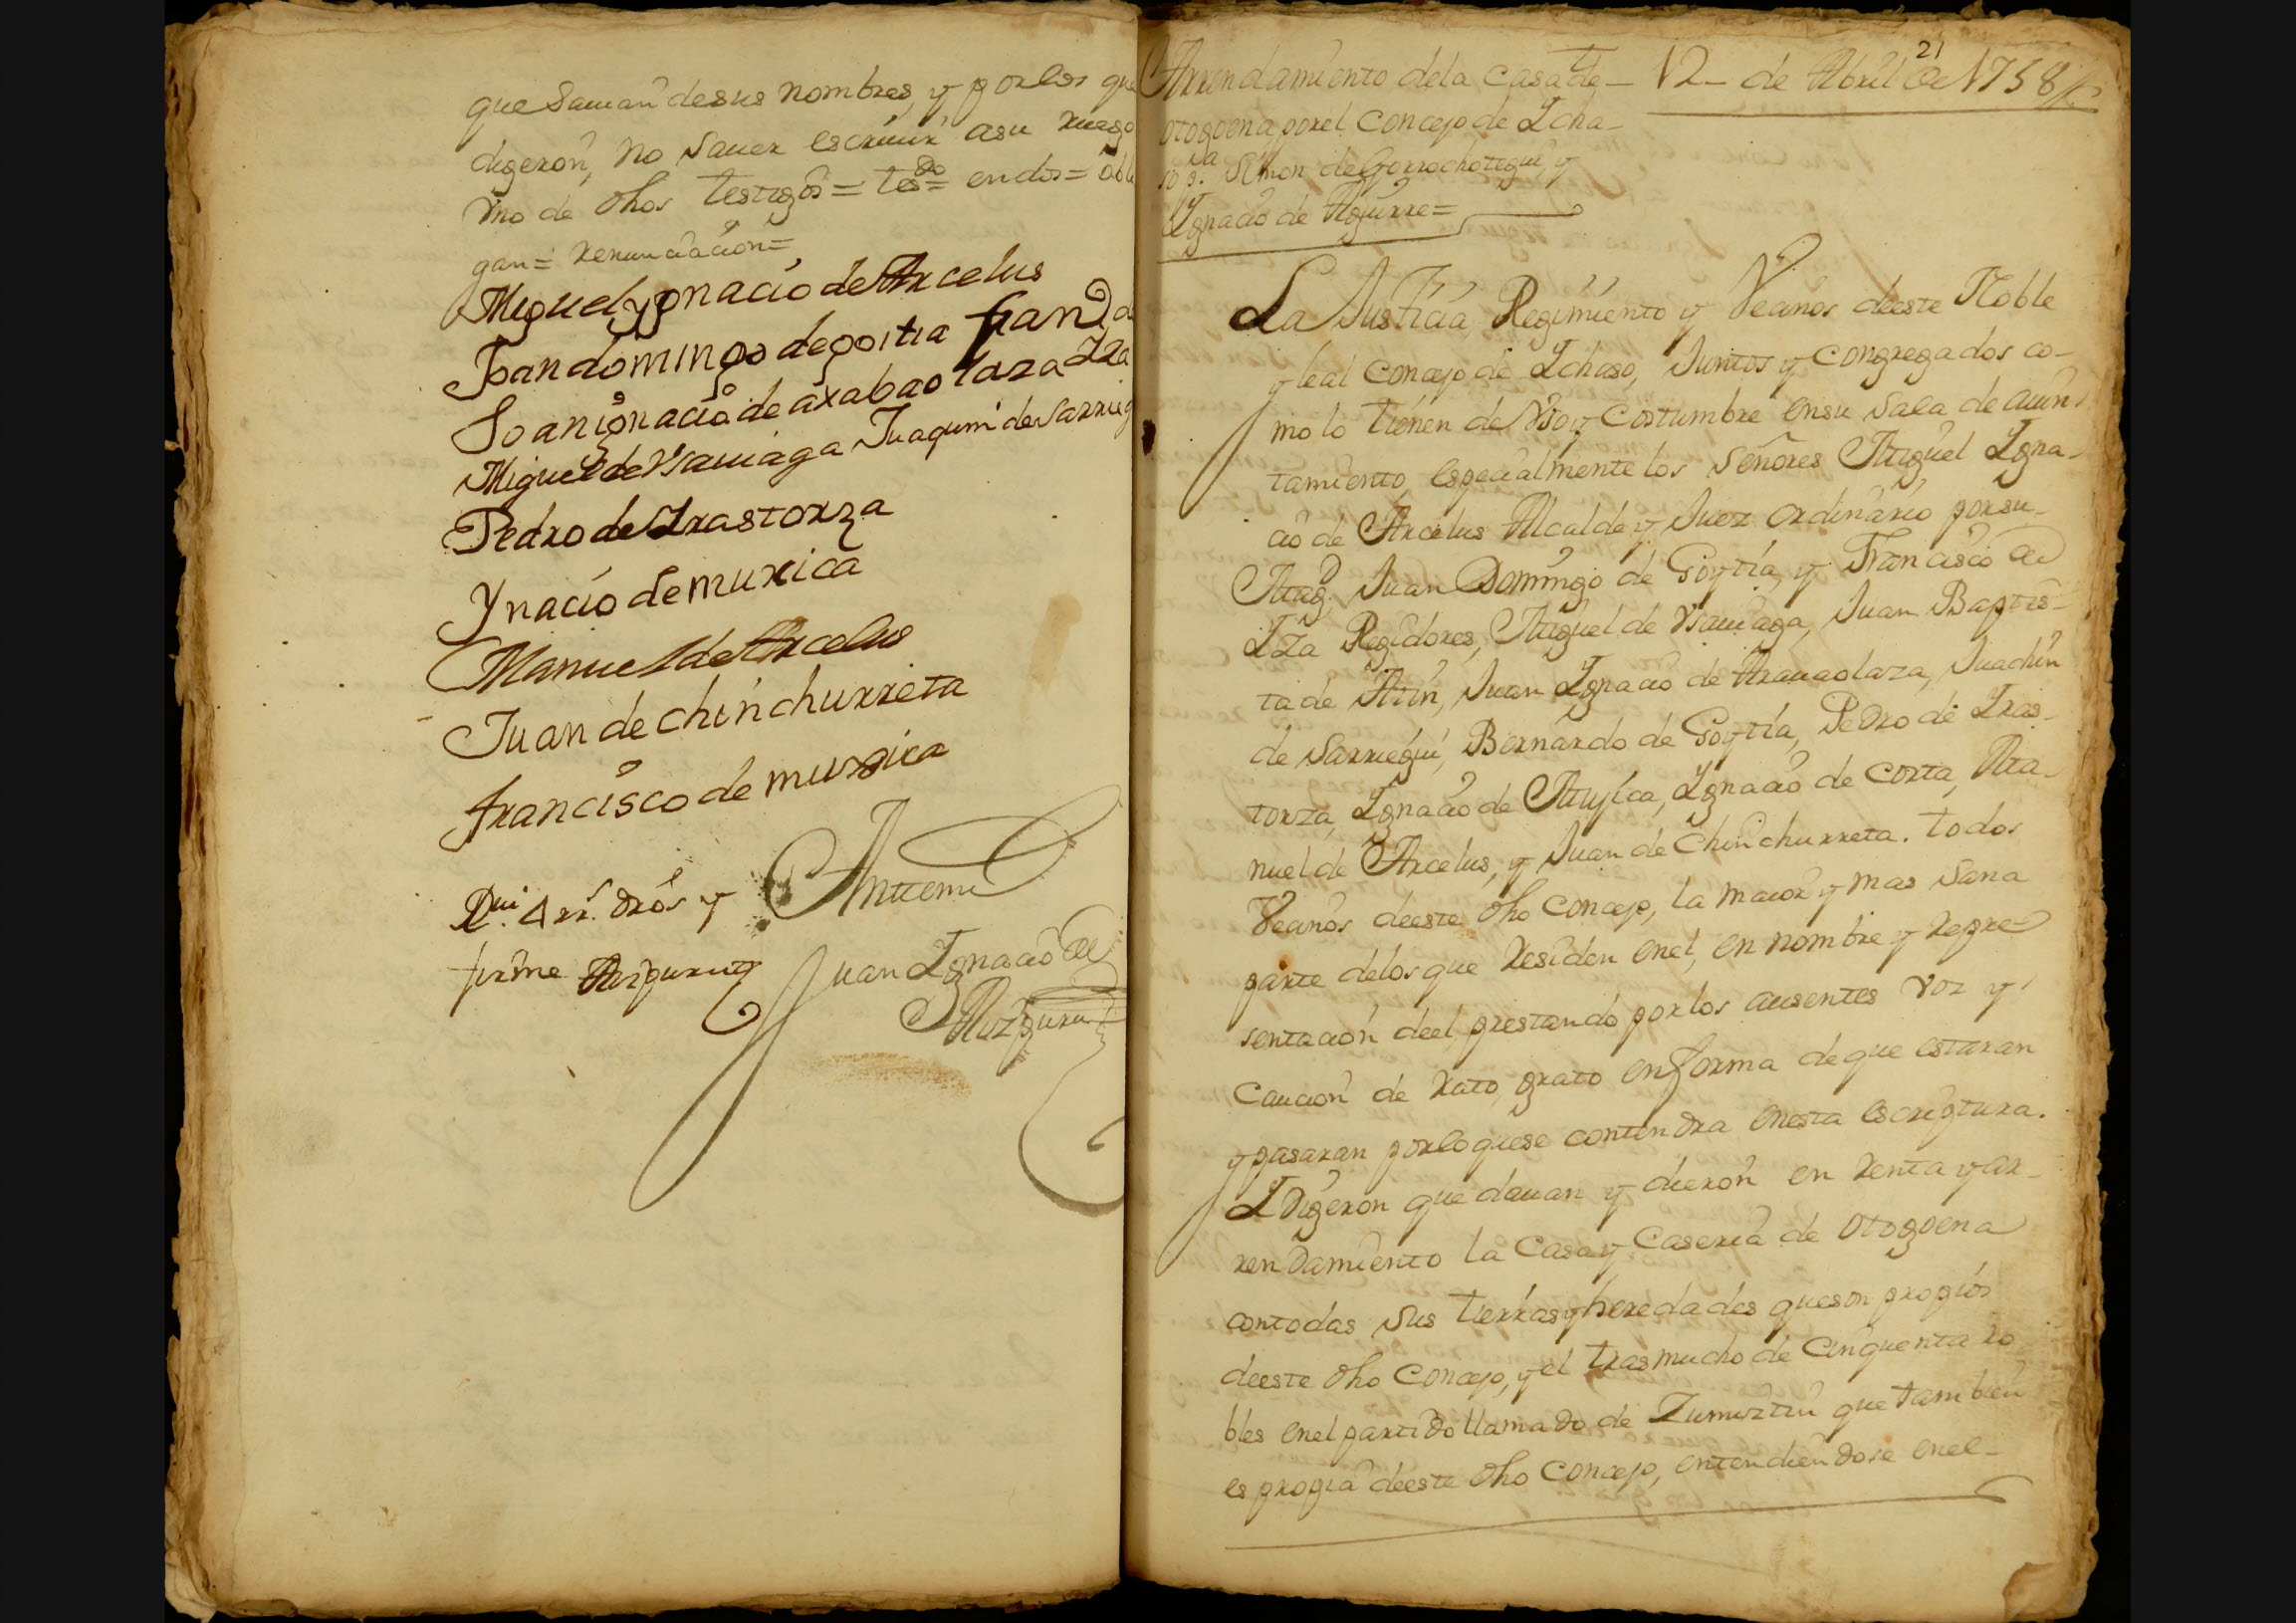 que Sauian desus nombres, y porlos que
digeron, No Sauer escriuir asu ruego
Vno de dhos testigos = tesdo= endos= obli
gan= Renunciacion=
Miguel ygnacio de Arcelus
Joan domingo de goitia fran de
Joan ignacio de arabaolaza Iza
Miguel de Vsauiaga Juaquin de Sarrieg
Pedro de Irastorza
Ynacio de muxica
Manuel de Arcelus
Juan de chinchurreta
francisco de muxica
Antemi
Rui 4 rr.s dros y
firme Aizpuru
Juan Ignacio de
Aizpuru
21
Arrendamiento dela Casa de - 12 - de Abril de 1758
otogoena por el Concejo de Icha-
so a Simon de Gorrochotegui, y
Ignacio de Aguirre=
La Justicia, Regimiento y Vecinos deeste Noble
y leal Concejo de Ichaso, Juntos y Congregados co-
mo lo tienen de Vso y Costumbre ensu Sala de aiun-
tamiento, especialmente los Señores Miguel Igna-
cio de Arcelus Alcalde y Juez ordinario por su
Mag.d Juan Domingo de Goytia, y Francisco de
Iza Regidores, Miguel de Vsauiaga, Juan Baptis-
ta de Atin, Juan Ignacio de Arauaolaza, Juachin
de Sarriegui, Bernardo de Goytia, Pedro de Iras-
torza, Ignacio de Mujica, Ignacio de Corta, Ma-
nuel de Arcelus, y Juan de Chinchurreta. todos
Vecinos deeste dho Concejo, la maior y mas Sana
parte delos que Residen enel, en nombre y Repre-
sentacion deel, prestando por los ausentes voz y
Caucion de Rato, grato enforma de que estaran
y pasaran porlo quese contendra enesta escriptura.
I Digeron que dauan y dieron en Renta y ar-
rendamiento la Casa y Caseria de Otogoena
contodas Sus tierras y heredades queson propios
deeste dho Concejo, y el trasmucho de Cinquenta ro
bles enel partido llamado de Zumiztin que tambien
es propia deeste dho Concejo, entendiendose enel-